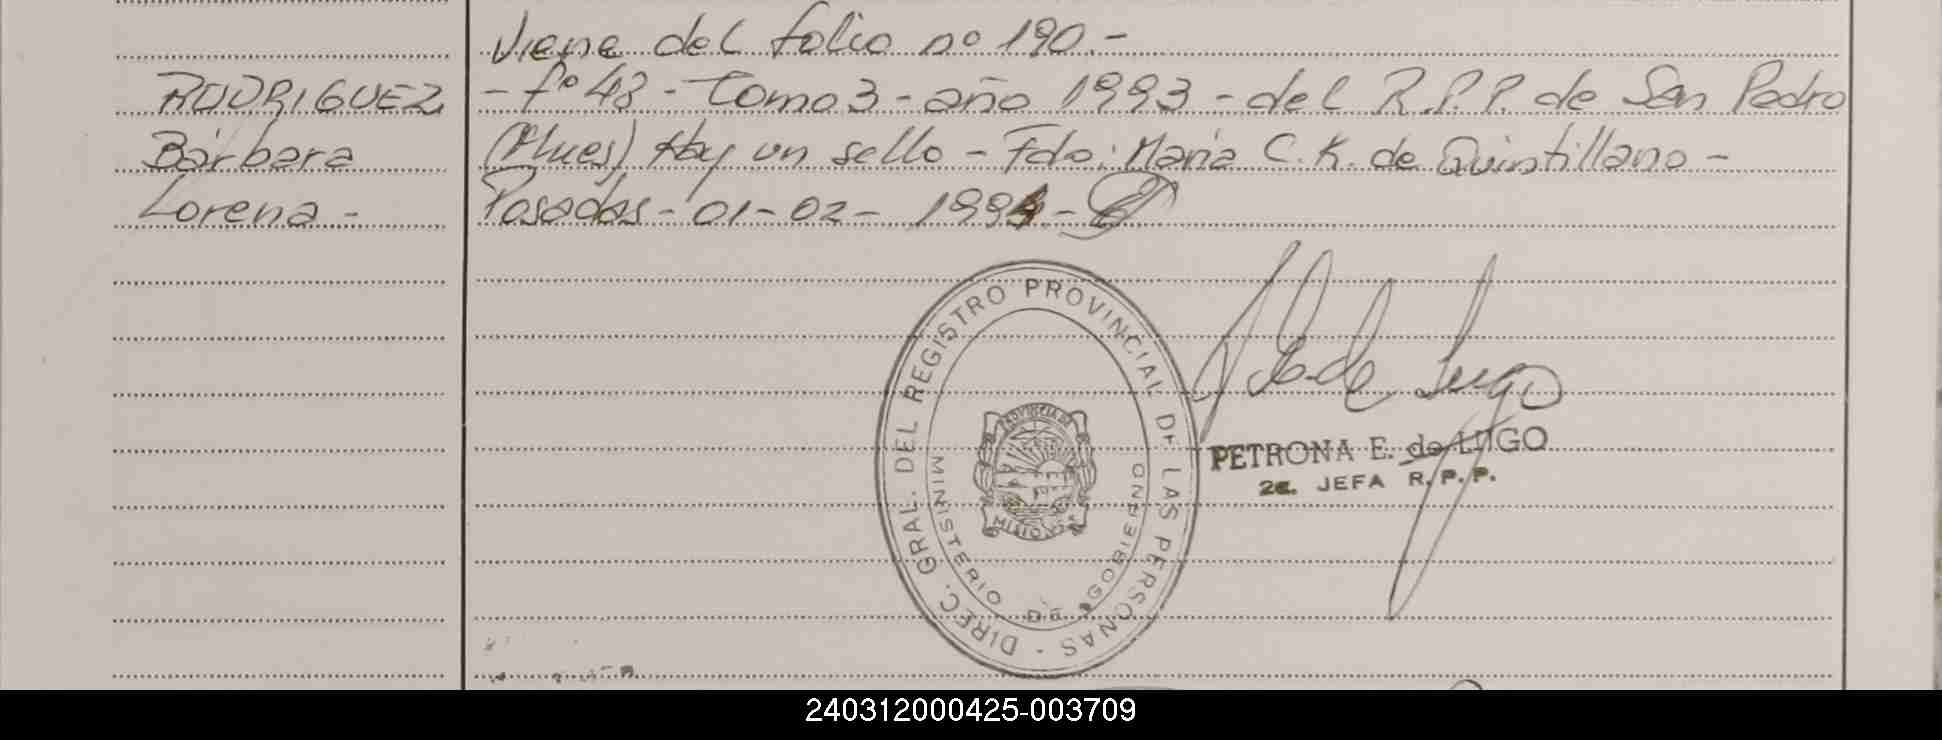 Viene del folio nº 190.-
RODRIGUEZ
Bárbara
Lorena -
- fº 48 - Tomo 3 - año 1993 - del R.P.P. de San Pedro
(Mnes) Hay un sello - Fdo: Maria C. K. de Quintillano -
Posadas - 01 - 02 - 1994 -
DIREC. GRAL. DEL REGISTRO PROVINCIAL DE LAS PERSONAS -
MINISTERIO DE GOBIERNO
PROVINCIA DE
MISIONES
de Lugo
PETRONA E. de LUGO
2a. JEFA R.P.P.
240312000425-003709